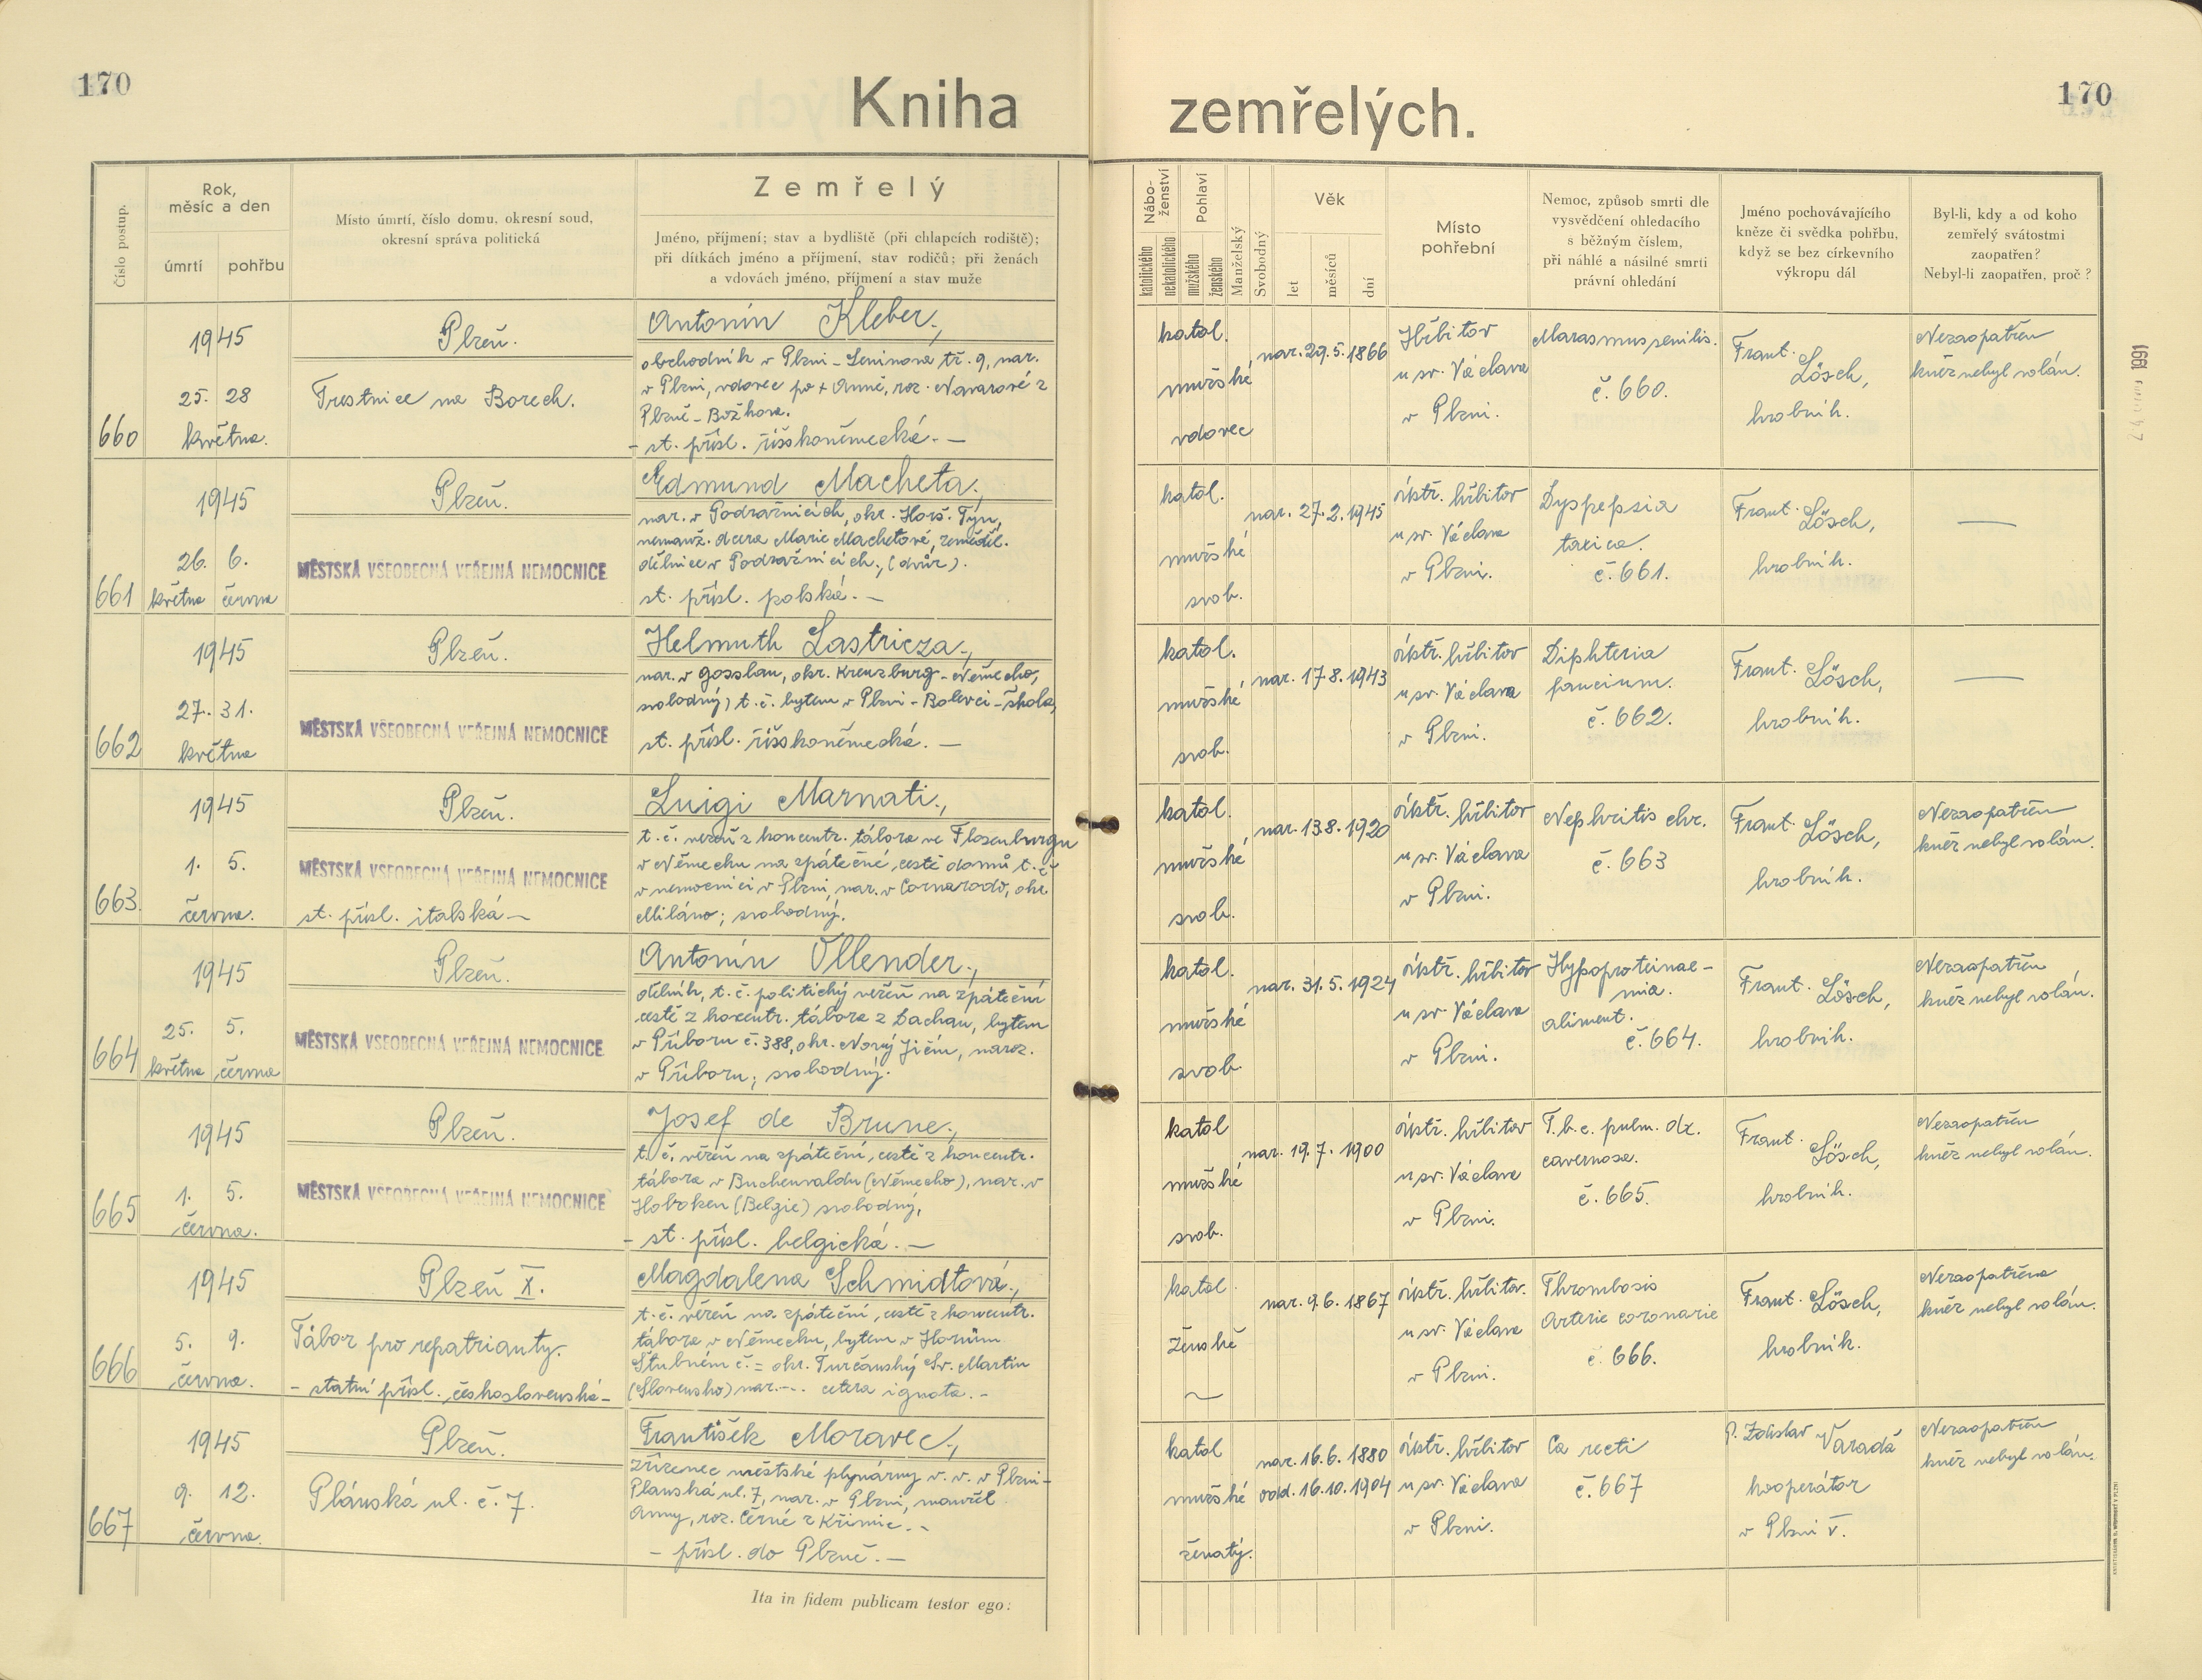 170
Kniha zemřelých.
170
Číslo postup.
Rok, měsíc a den
úmrtí
pohřbu
Místo úmrtí, číslo domu, okresní soud,
okresní správa politická
Zemřelý
Jméno, příjmení; stav a bydliště (při chlapcích rodiště);
při dítkách jméno a příjmení, stav rodičů; při ženách
a vdovách jméno, příjmení a stav muže
Nábo-
ženství
katolického
nekatolického
Pohlaví
mužského
ženského
Manželský
Svobodný
Věk
let
měsíců
dní
Místo
pohřební
Nemoc, způsob smrti dle
vysvědčení ohledacího
s běžným číslem,
při náhlé a násilné smrti
právní ohledání
Jméno pochovávajícího
kněze či svědka pohřbu,
když se bez církevního
výkropu dál
Byl-li, kdy a od koho
zemřelý svátostmi
zaopatřen?
Nebyl-li zaopatřen, proč?
660
1945
25. 28
května.
Plzeň.
Trestnice na Borech.
Antonín Kleber.,
obchodník v Plzni - Leninova tř. 9, nar.
v Plzni, vdovec po + Anně, roz. Navarové z
Plzně - Božkova.
- st. přísl. říšskoněmecká. -
katol.
mužské
vdovec
nar. 29. 5. 1866
Hřbitov
u sv. Václava
v Plzni.
Marasmus senilis.
č. 660.
Frant. Lösch,
hrobník.
Nezaopatřen
kněz nebyl volán.
661
1945
26. 6.
května června
Plzeň.
MĚSTSKÁ VŠEOBECNÁ VEŘEJNÁ NEMOCNICE
Edmund Macheta.,
nar. v Podražnicích, okr. Horš. Týn,
nemanž. dcera Marie Machetové, zeměděl.
dělnice v Podražnicích., (dvůr).
st. přísl. polská. -
katol.
mužské
svob.
nar. 27. 2. 1945
ústř. hřbitov
u sv. Václava
v Plzni.
Dyspepsia
toxica.
č. 661.
Frant. Lösch,
hrobník.
—
662
1945
27. 31.
května
Plzeň.
MĚSTSKÁ VŠEOBECNÁ VEŘEJNÁ NEMOCNICE
Helmuth Lastricza.,
nar. v Gosslau, okr. Kreuzburg - Německo,
svobodný, t. č. bytem v Plzni - Bolevci - škola,
st. přísl. říšskoněmecká. -
katol.
mužské
svob.
nar. 17. 8. 1943
ústř. hřbitov
u sv. Václava
v Plzni.
Diphteria
faucium.
č. 662.
Frant. Lösch,
hrobník.
—
663.
1945
1. 5.
června.
Plzeň.
MĚSTSKÁ VŠEOBECNÁ VEŘEJNÁ NEMOCNICE
st. přísl. italská -
Luigi Marnati.,
t. č. vězeň z koncentr. tábora ve Flosenburgu
v Německu na zpáteční cestě domů t. č.
v nemocnici v Plzni, nar. v Cornarodo, okr.
Miláno; svobodný.
katol.
mužské
svob.
nar. 13. 8. 1920
ústř. hřbitov
u sv. Václava
v Plzni.
Nephritis chr.
č. 663
Frant. Lösch,
hrobník.
Nezaopatřen
kněz nebyl volán.
664
1945
25. 5.
května června
Plzeň.
MĚSTSKÁ VŠEOBECNÁ VEŘEJNÁ NEMOCNICE
Antonín Üllender.,
dělník, t. č. politický vězeň na zpáteční
cestě z koncentr. tábora z Dachau, bytem
v Příboru č. 388, okr. Nový Jičín, naroz.
v Příboru; svobodný.
katol.
mužské
svob.
nar. 31. 5. 1924
ústř. hřbitov
u sv. Václava
v Plzni.
Hypoproteinae-
mia.
aliment.
č. 664.
Frant. Lösch,
hrobník.
Nezaopatřen
kněz nebyl volán.
665
1945
1. 5.
června.
Plzeň.
MĚSTSKÁ VŠEOBECNÁ VEŘEJNÁ NEMOCNICE
Josef de Brune.,
t. č. vězeň na zpáteční, cestě z koncentr.
tábora v Buchenvaldu (Německo), nar. v
Hoboken (Belgie) svobodný,
- st. přísl. belgická. -
katol
mužské
svob.
nar. 19. 7. 1900
ústř. hřbitov
u sv. Václava
v Plzni.
T. b. c. pulm. dx.
cavernosa.
č. 665.
Frant. Lösch,
hrobník.
Nezaopatřen
kněz nebyl volán.
666
1945
5. 9.
června.
Plzeň X.
Tábor pro repatrianty.
- statní přísl. československá -
Magdalena Schmidtová.,
t. č. vězeň na zpáteční, cestě z koncentr.
tábora v Německu, bytem v Horním
Štubném č. = okr. Turčanský Sv. Martin
(Slovensko) nar. -.. cetera ignota. -
katol.
ženské
~
nar. 9. 6. 1867
ústř. hřbitov.
u sv. Václava
v Plzni.
Thrombosis
Arterie coronarie
č. 666.
Frant. Lösch,
hrobník.
Nezaopatřena
kněz nebyl volán.
667
1945
9. 12.
června.
Plzeň.
Plánská ul. č. 7.
František Moravec.,
zřízenec městské plynárny v. v. v Plzni -
Planská ul. 7, nar. v Plzni, manžel
Anny, roz. Černé z Křimic. -
- přísl. do Plzně. -
katol
mužské
ženatý.
nar. 16. 6. 1880
odd. 16. 10. 1904
ústř. hřbitov
u sv. Václava
v Plzni.
Ca recti
č. 667
P. Zdislav Varadě
kooperátor
v Plzni V.
Nezaopatřen
kněz nebyl volán.
Ita in fidem publicam testor ego: